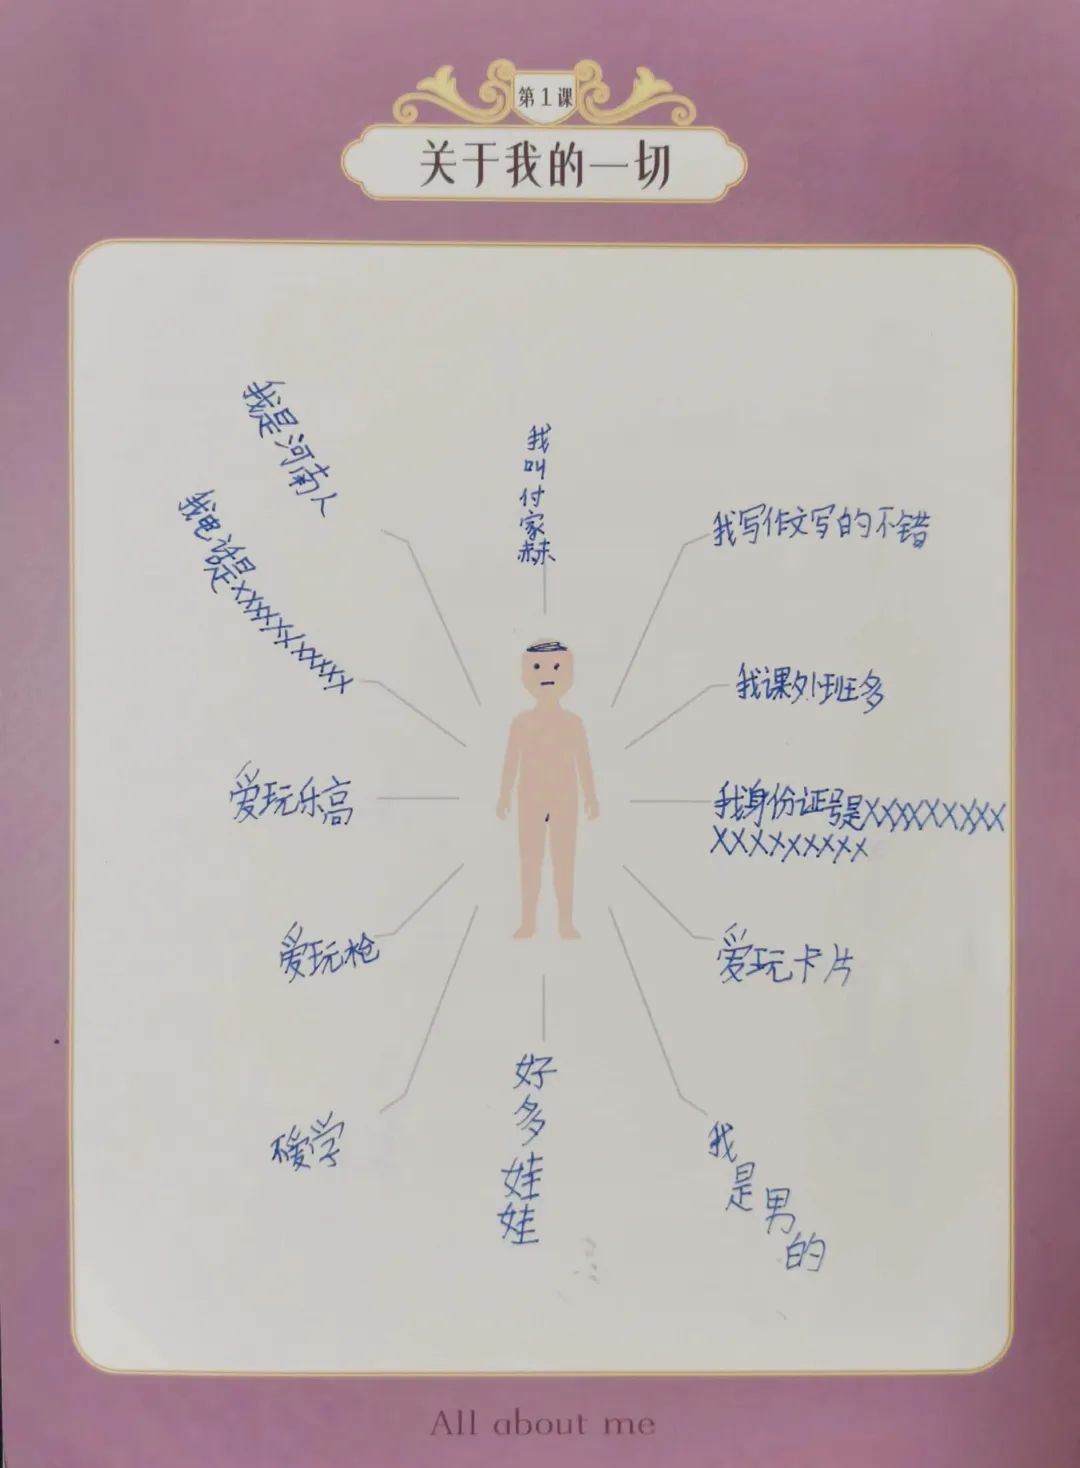 第1课
关于我的一切
我是河南人
我叫付家赫
我写作文写的不错
我电话是XXXXXXXXXXX
我课外班多
爱玩乐高
我身份证号是XXXXXXXXX
XXXXXXXXX
爱玩枪
爱玩卡片
不爱学
好多娃娃
我是男的
All about me